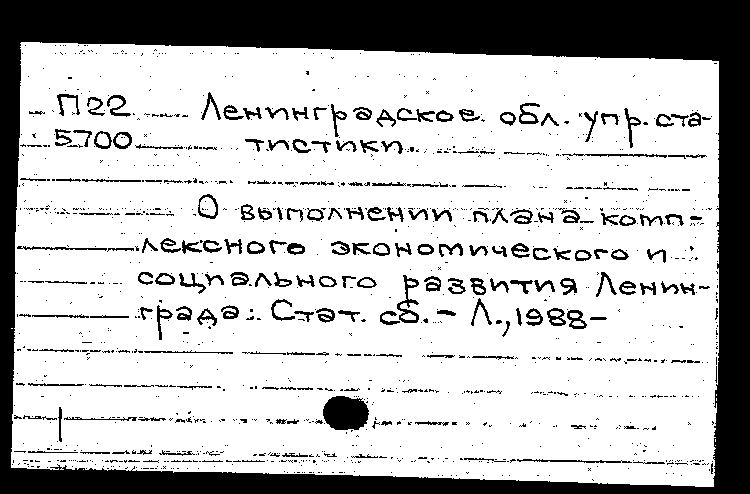 П22 Ленинградское обл. упр. ста-
5700 тистики.
О выполнении плана комп-
лексного экономического и
социального развития Ленин-
града: Стат. сб. - Л., 1988-